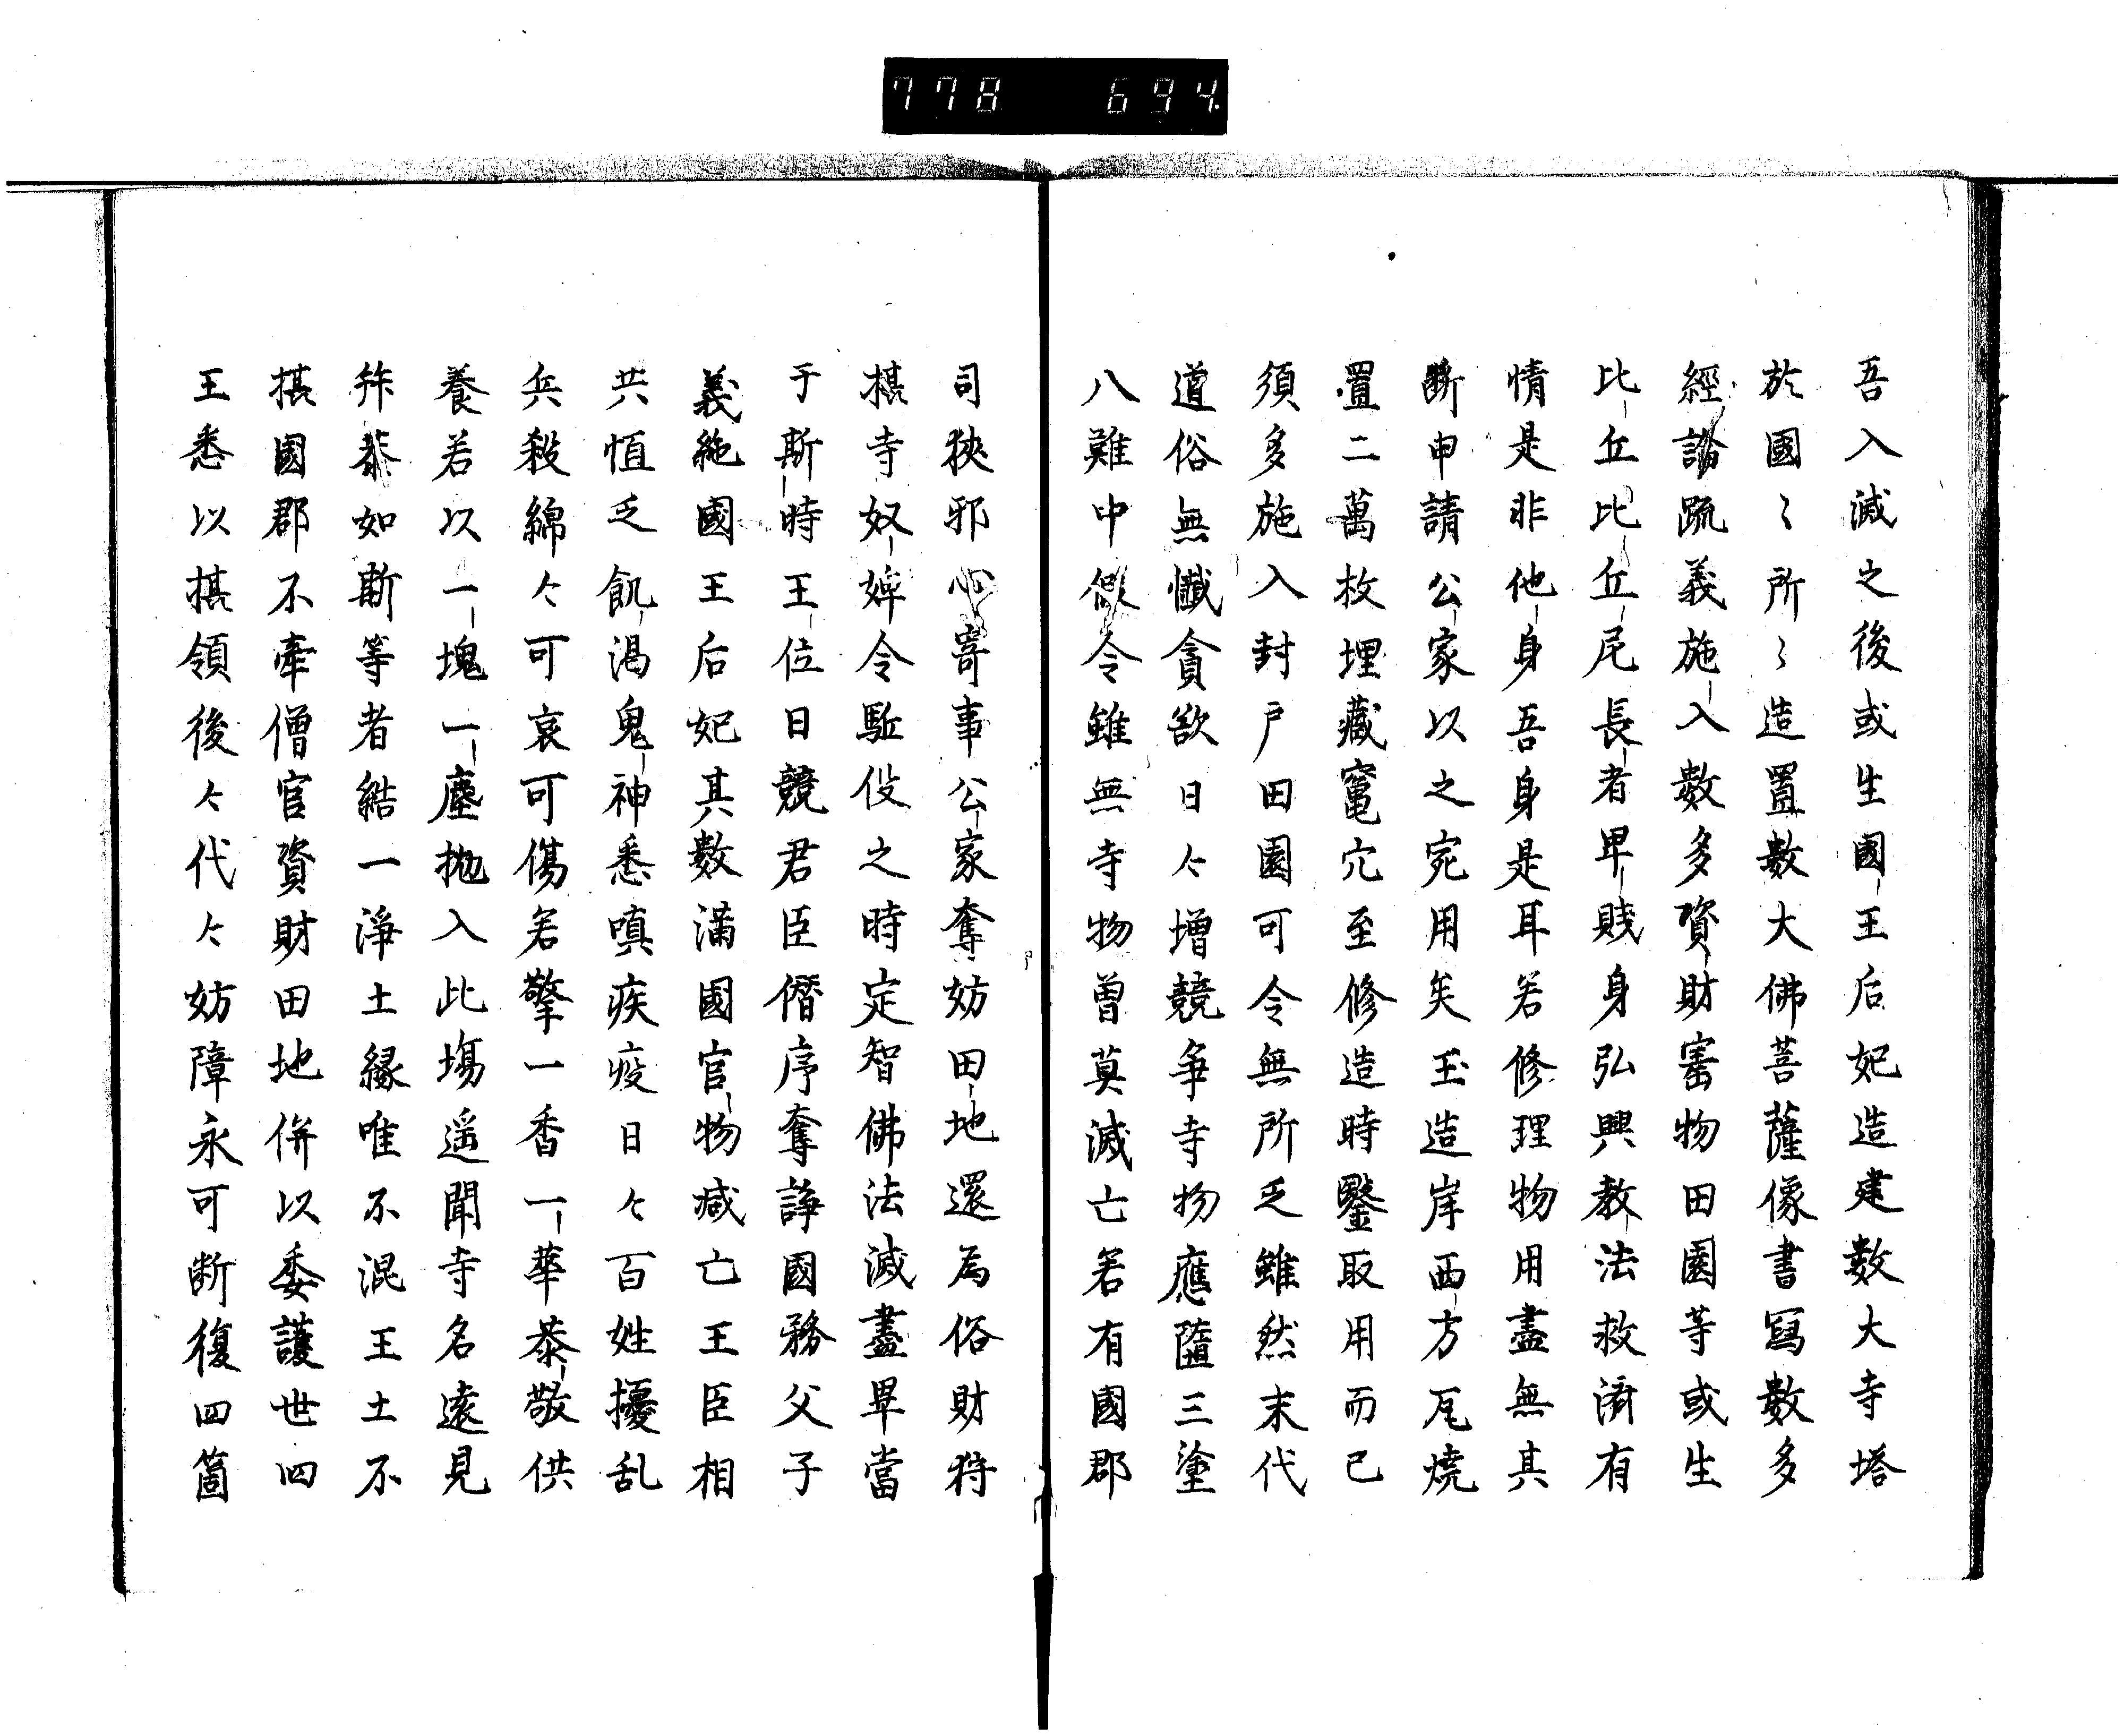 778 694
吾入滅之後或生國王后妃造建數大寺塔
於國〻所〻造置數大佛菩薩像書寫數多
經論疏義施入數多資財寳物田園等或生
比丘比丘尼長者卑賤身弘興教法救済有
情是非他身吾身是耳若修理物用盡無其
斷申請公家以之宛用矣玉造岸西方瓦燒
置二萬枚埋藏窰穴至修造時鑿取用而已
須多施入封戸田園可令無所乏雖然末代
道俗無懺貪欲日々増競争寺物應墮三塗
八難中假令雖無寺物曽莫滅亡若有國郡
司狹邪心寄事公家奪妨田地還為俗財将
掑寺奴婢令駈役之時定智佛法滅盡畢當
于斯時王位日競君臣僭序奪諍國務父子
義絶國王后妃其數滿國官物减亡王臣相
共恒乏飢渇鬼神悉嗔疾疫日々百姓擾乱
兵殺綿々可哀可傷若擎一香一華恭敬供
養若以一塊一塵抛入此場遥聞寺名遠見
拜恭如斯等者結一淨土縁唯不混王土不
掑國郡不牽僧官資財田地併以委護世四
王悉以掑領後々代々妨障永可断復四箇